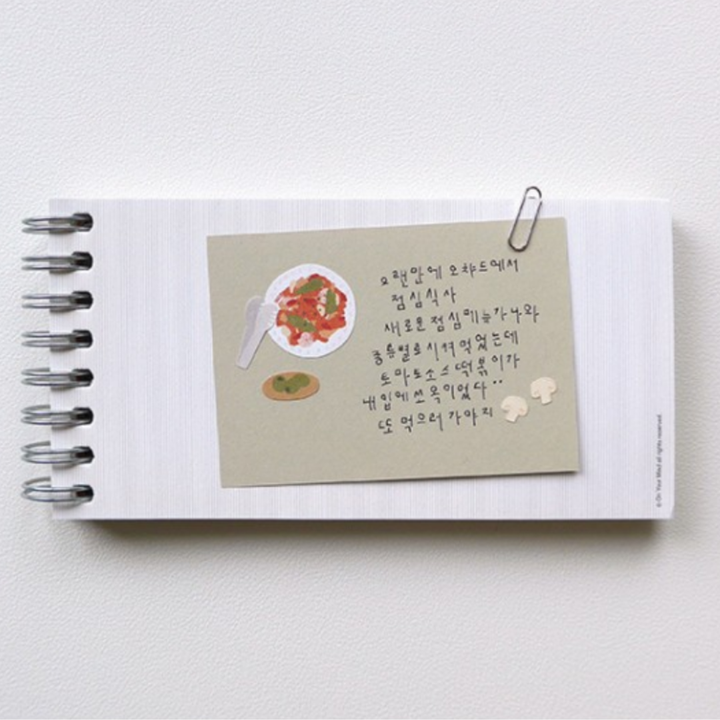 오랜만에 오챠드에서
점심식사
새로운 점심메뉴가 나와
종류별로 시켜 먹었는데
토마토소스 떡볶이가
내 입에 쏘옥이었다..
또 먹으러 가야지
© On Your Mind all rights reserved.